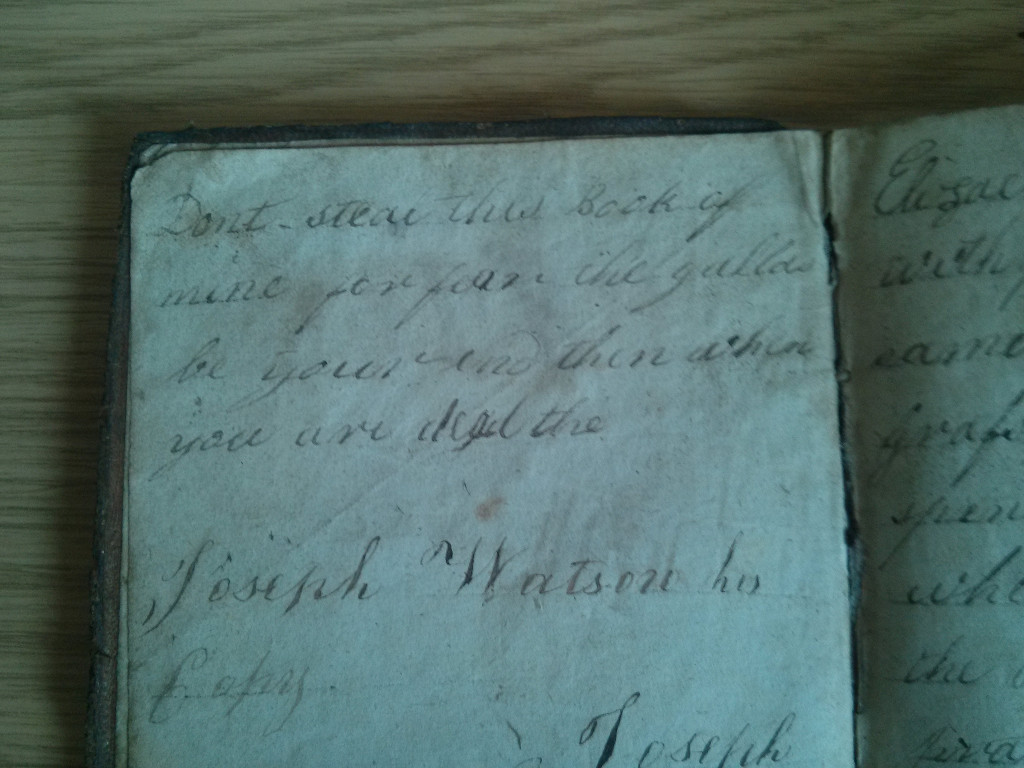 Dont steal this Book of
mine for fear the gallas
be your end then when
you are dead the
Joseph Watson his
Copy
Joseph
with
came
the